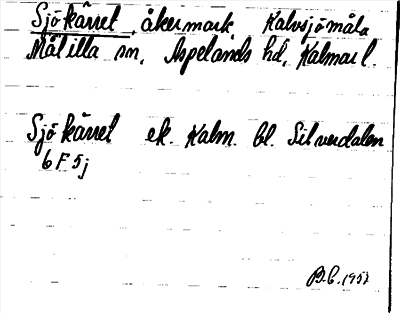 Sjökärret, åkermark, Kalvsjömåla
Målilla sn, Aspelands hd, Kalmar l.
Sjökärret ek. Kalm. bl. Silverdalen
6F5j